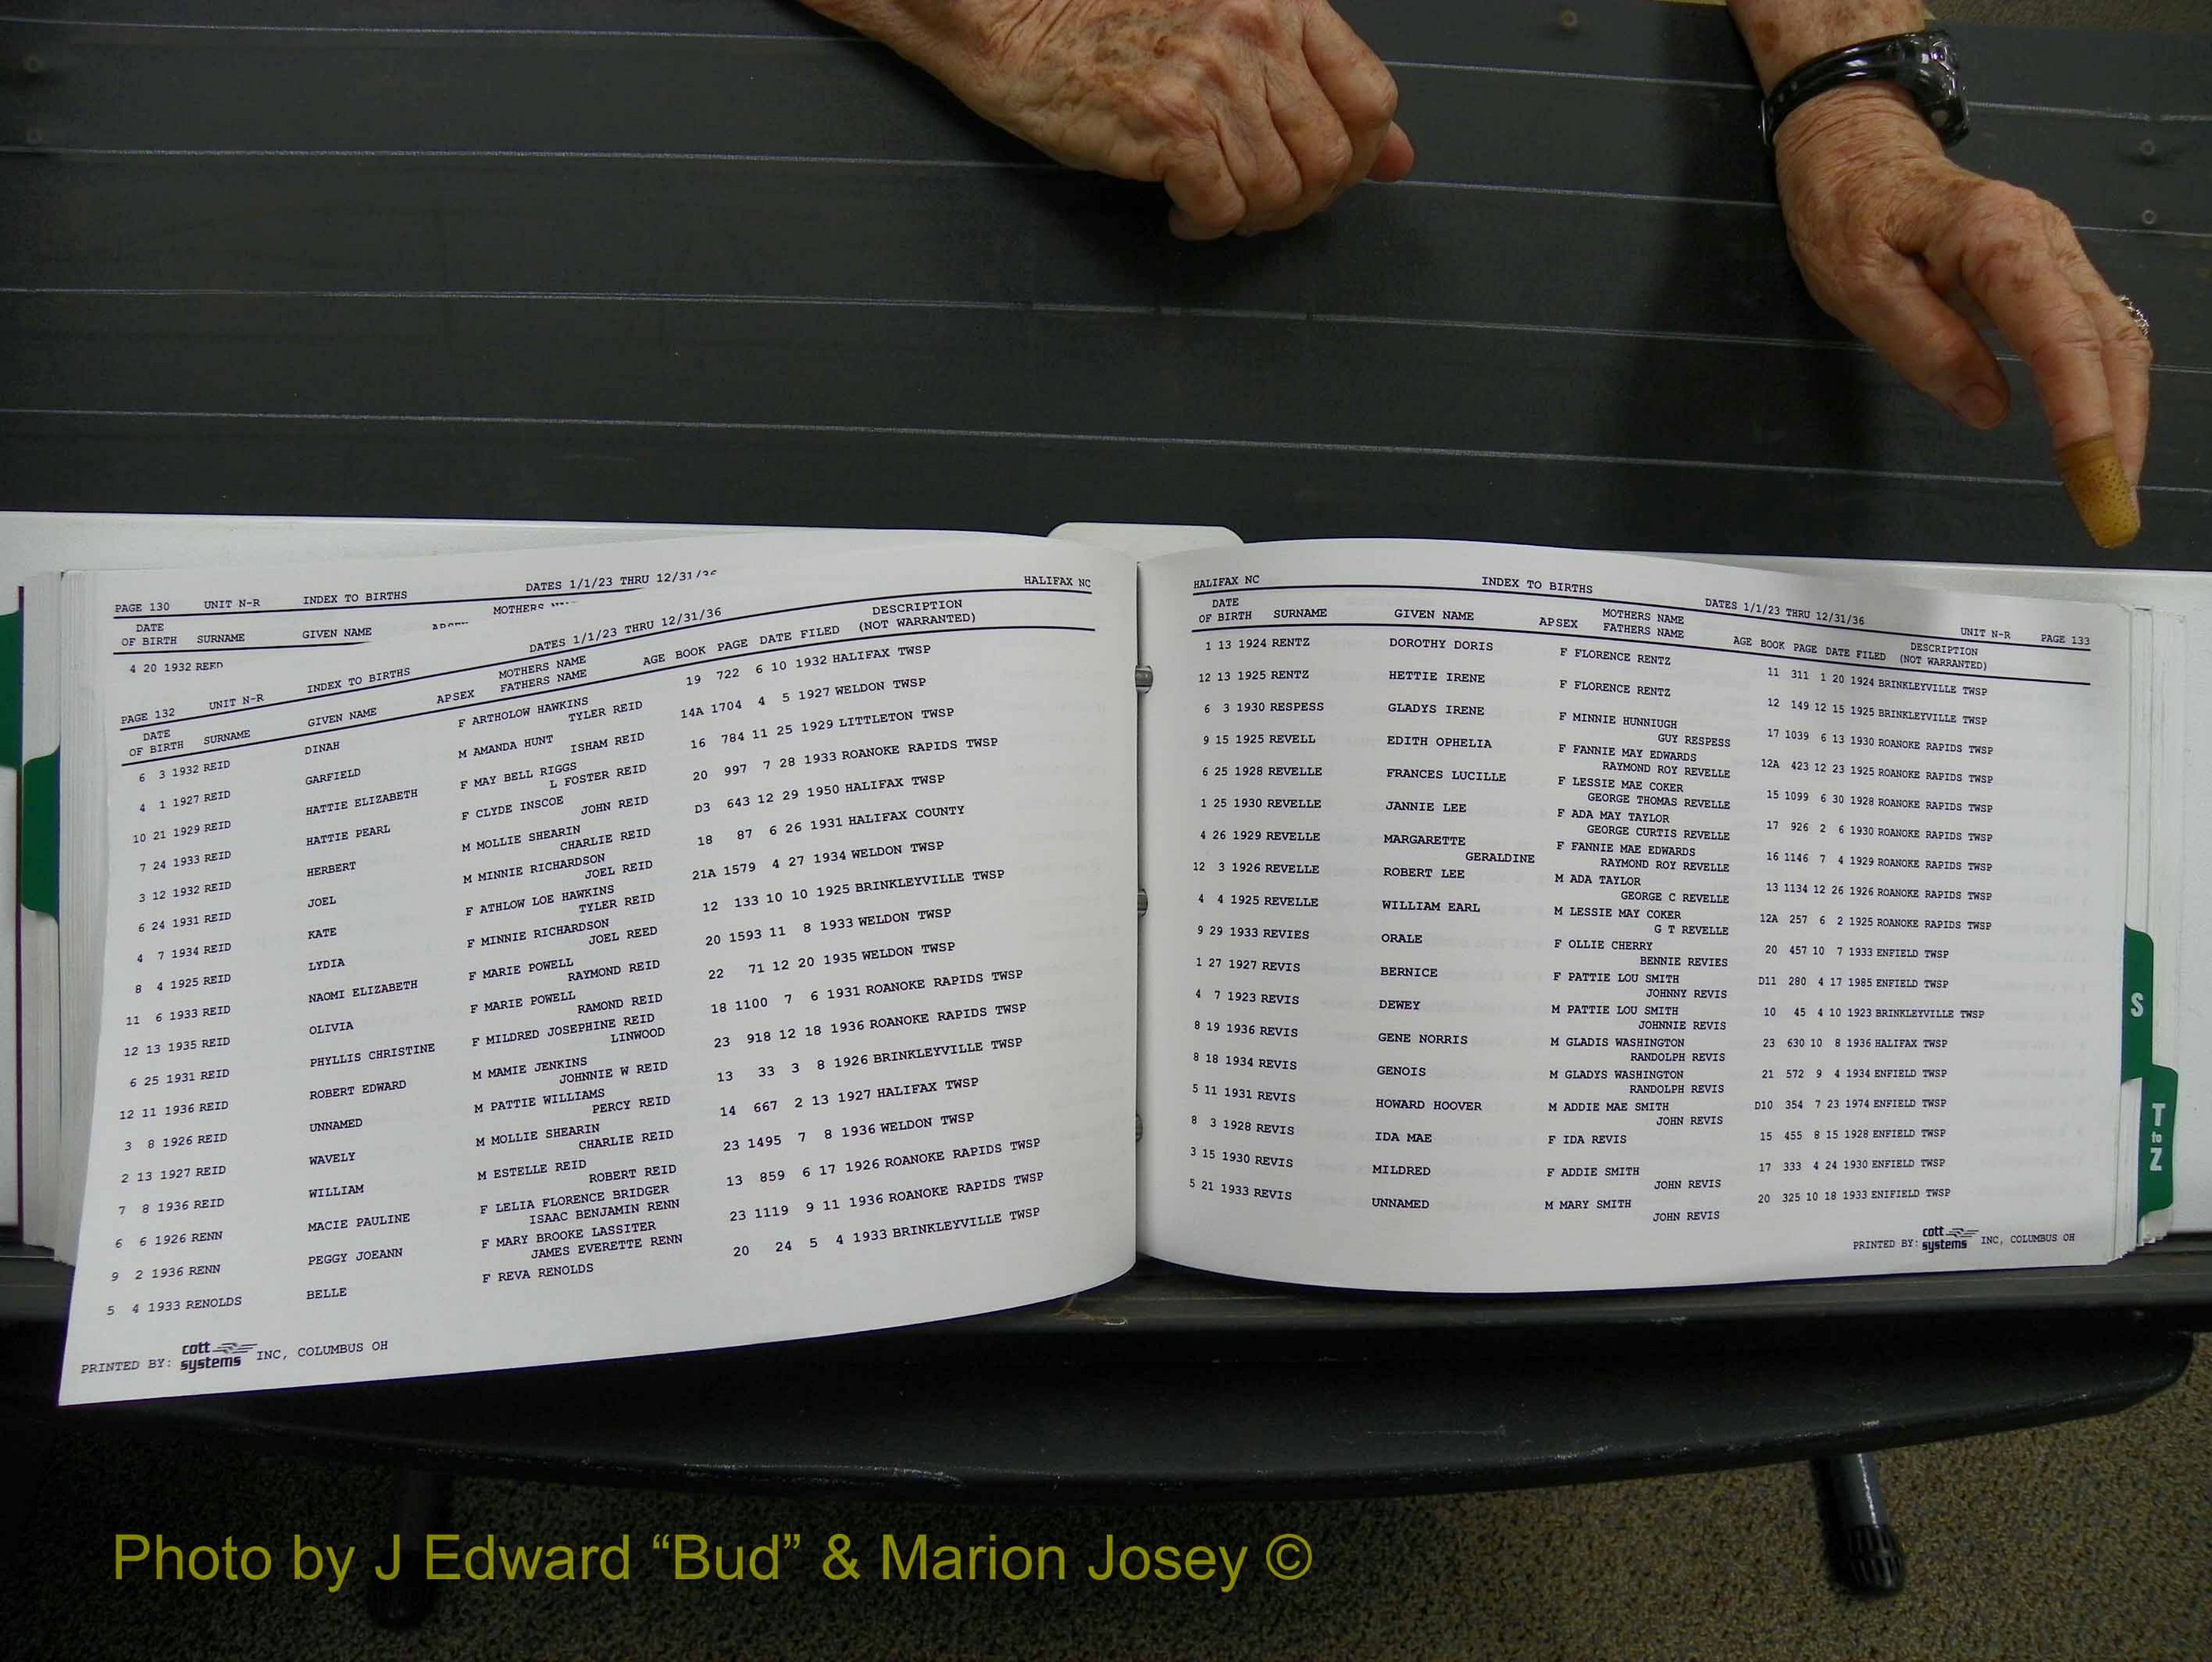 PAGE 130 UNIT N-R INDEX TO BIRTHS DATES 1/1/23 THRU 12/31/36
DATE MOTHERS
OF BIRTH SURNAME GIVEN NAME
4 20 1932 REED
PAGE 132 UNIT N-R INDEX TO BIRTHS DATES 1/1/23 THRU 12/31/36 HALIFAX NC
DATE MOTHERS NAME DESCRIPTION
OF BIRTH SURNAME GIVEN NAME APSEX FATHERS NAME AGE BOOK PAGE DATE FILED (NOT WARRANTED)
6 3 1932 REID DINAH F ARTHOLOW HAWKINS 19 722 6 10 1932 HALIFAX TWSP
TYLER REID
4 1 1927 REID GARFIELD M AMANDA HUNT 14A 1704 4 5 1927 WELDON TWSP
ISHAM REID
10 21 1929 REID HATTIE ELIZABETH F MAY BELL RIGGS 16 784 11 25 1929 LITTLETON TWSP
L FOSTER REID
7 24 1933 REID HATTIE PEARL F CLYDE INSCOE 20 997 7 28 1933 ROANOKE RAPIDS TWSP
JOHN REID
3 12 1932 REID HERBERT M MOLLIE SHEARIN D3 643 12 29 1950 HALIFAX TWSP
CHARLIE REID
6 24 1931 REID JOEL M MINNIE RICHARDSON 18 87 6 26 1931 HALIFAX COUNTY
JOEL REID
4 7 1934 REID KATE F ATHLOW LOE HAWKINS 21A 1579 4 27 1934 WELDON TWSP
TYLER REID
8 4 1925 REID LYDIA F MINNIE RICHARDSON 12 133 10 10 1925 BRINKLEYVILLE TWSP
JOEL REED
11 6 1933 REID NAOMI ELIZABETH F MARIE POWELL 20 1593 11 8 1933 WELDON TWSP
RAYMOND REID
12 13 1935 REID OLIVIA F MARIE POWELL 22 71 12 20 1935 WELDON TWSP
RAMOND REID
6 25 1931 REID PHYLLIS CHRISTINE F MILDRED JOSEPHINE REID 18 1100 7 6 1931 ROANOKE RAPIDS TWSP
LINWOOD
12 11 1936 REID ROBERT EDWARD M MAMIE JENKINS 23 918 12 18 1936 ROANOKE RAPIDS TWSP
JOHNNIE W REID
3 8 1926 REID UNNAMED M PATTIE WILLIAMS 13 33 3 8 1926 BRINKLEYVILLE TWSP
PERCY REID
2 13 1927 REID WAVELY M MOLLIE SHEARIN 14 667 2 13 1927 HALIFAX TWSP
CHARLIE REID
7 8 1936 REID WILLIAM M ESTELLE REID 23 1495 7 8 1936 WELDON TWSP
ROBERT REID
6 6 1926 RENN MACIE PAULINE F LELIA FLORENCE BRIDGER 13 859 6 17 1926 ROANOKE RAPIDS TWSP
ISAAC BENJAMIN RENN
9 2 1936 RENN PEGGY JOEANN F MARY BROOKE LASSITER 23 1119 9 11 1936 ROANOKE RAPIDS TWSP
JAMES EVERETTE RENN
5 4 1933 RENOLDS BELLE F REVA RENOLDS 20 24 5 4 1933 BRINKLEYVILLE TWSP
PRINTED BY: cott systems INC, COLUMBUS OH
HALIFAX NC INDEX TO BIRTHS DATES 1/1/23 THRU 12/31/36 UNIT N-R PAGE 133
DATE MOTHERS NAME DESCRIPTION
OF BIRTH SURNAME GIVEN NAME APSEX FATHERS NAME AGE BOOK PAGE DATE FILED (NOT WARRANTED)
1 13 1924 RENTZ DOROTHY DORIS F FLORENCE RENTZ 11 311 1 20 1924 BRINKLEYVILLE TWSP
12 13 1925 RENTZ HETTIE IRENE F FLORENCE RENTZ 12 149 12 15 1925 BRINKLEYVILLE TWSP
6 3 1930 RESPESS GLADYS IRENE F MINNIE HUNNIUGH 17 1039 6 13 1930 ROANOKE RAPIDS TWSP
GUY RESPESS
9 15 1925 REVELL EDITH OPHELIA F FANNIE MAY EDWARDS 12A 423 12 23 1925 ROANOKE RAPIDS TWSP
RAYMOND ROY REVELLE
6 25 1928 REVELLE FRANCES LUCILLE F LESSIE MAE COKER 15 1099 6 30 1928 ROANOKE RAPIDS TWSP
GEORGE THOMAS REVELLE
1 25 1930 REVELLE JANNIE LEE F ADA MAY TAYLOR 17 926 2 6 1930 ROANOKE RAPIDS TWSP
GEORGE CURTIS REVELLE
4 26 1929 REVELLE MARGARETTE F FANNIE MAE EDWARDS 16 1146 7 4 1929 ROANOKE RAPIDS TWSP
GERALDINE RAYMOND ROY REVELLE
12 3 1926 REVELLE ROBERT LEE M ADA TAYLOR 13 1134 12 26 1926 ROANOKE RAPIDS TWSP
GEORGE C REVELLE
4 4 1925 REVELLE WILLIAM EARL M LESSIE MAY COKER 12A 257 6 2 1925 ROANOKE RAPIDS TWSP
G T REVELLE
9 29 1933 REVIES ORALE F OLLIE CHERRY 20 457 10 7 1933 ENFIELD TWSP
BENNIE REVIES
1 27 1927 REVIS BERNICE F PATTIE LOU SMITH D11 280 4 17 1985 ENFIELD TWSP
JOHNNY REVIS
4 7 1923 REVIS DEWEY M PATTIE LOU SMITH 10 45 4 10 1923 BRINKLEYVILLE TWSP
JOHNNIE REVIS
8 19 1936 REVIS GENE NORRIS M GLADIS WASHINGTON 23 630 10 8 1936 HALIFAX TWSP
RANDOLPH REVIS
8 18 1934 REVIS GENOIS M GLADYS WASHINGTON 21 572 9 4 1934 ENFIELD TWSP
RANDOLPH REVIS
5 11 1931 REVIS HOWARD HOOVER M ADDIE MAE SMITH D10 354 7 23 1974 ENFIELD TWSP
JOHN REVIS
8 3 1928 REVIS IDA MAE F IDA REVIS 15 455 8 15 1928 ENFIELD TWSP
3 15 1930 REVIS MILDRED F ADDIE SMITH 17 333 4 24 1930 ENFIELD TWSP
JOHN REVIS
5 21 1933 REVIS UNNAMED M MARY SMITH 20 325 10 18 1933 ENIFIELD TWSP
JOHN REVIS
PRINTED BY: cott systems INC, COLUMBUS OH
S
T
to
Z
Photo by J Edward “Bud” & Marion Josey ©